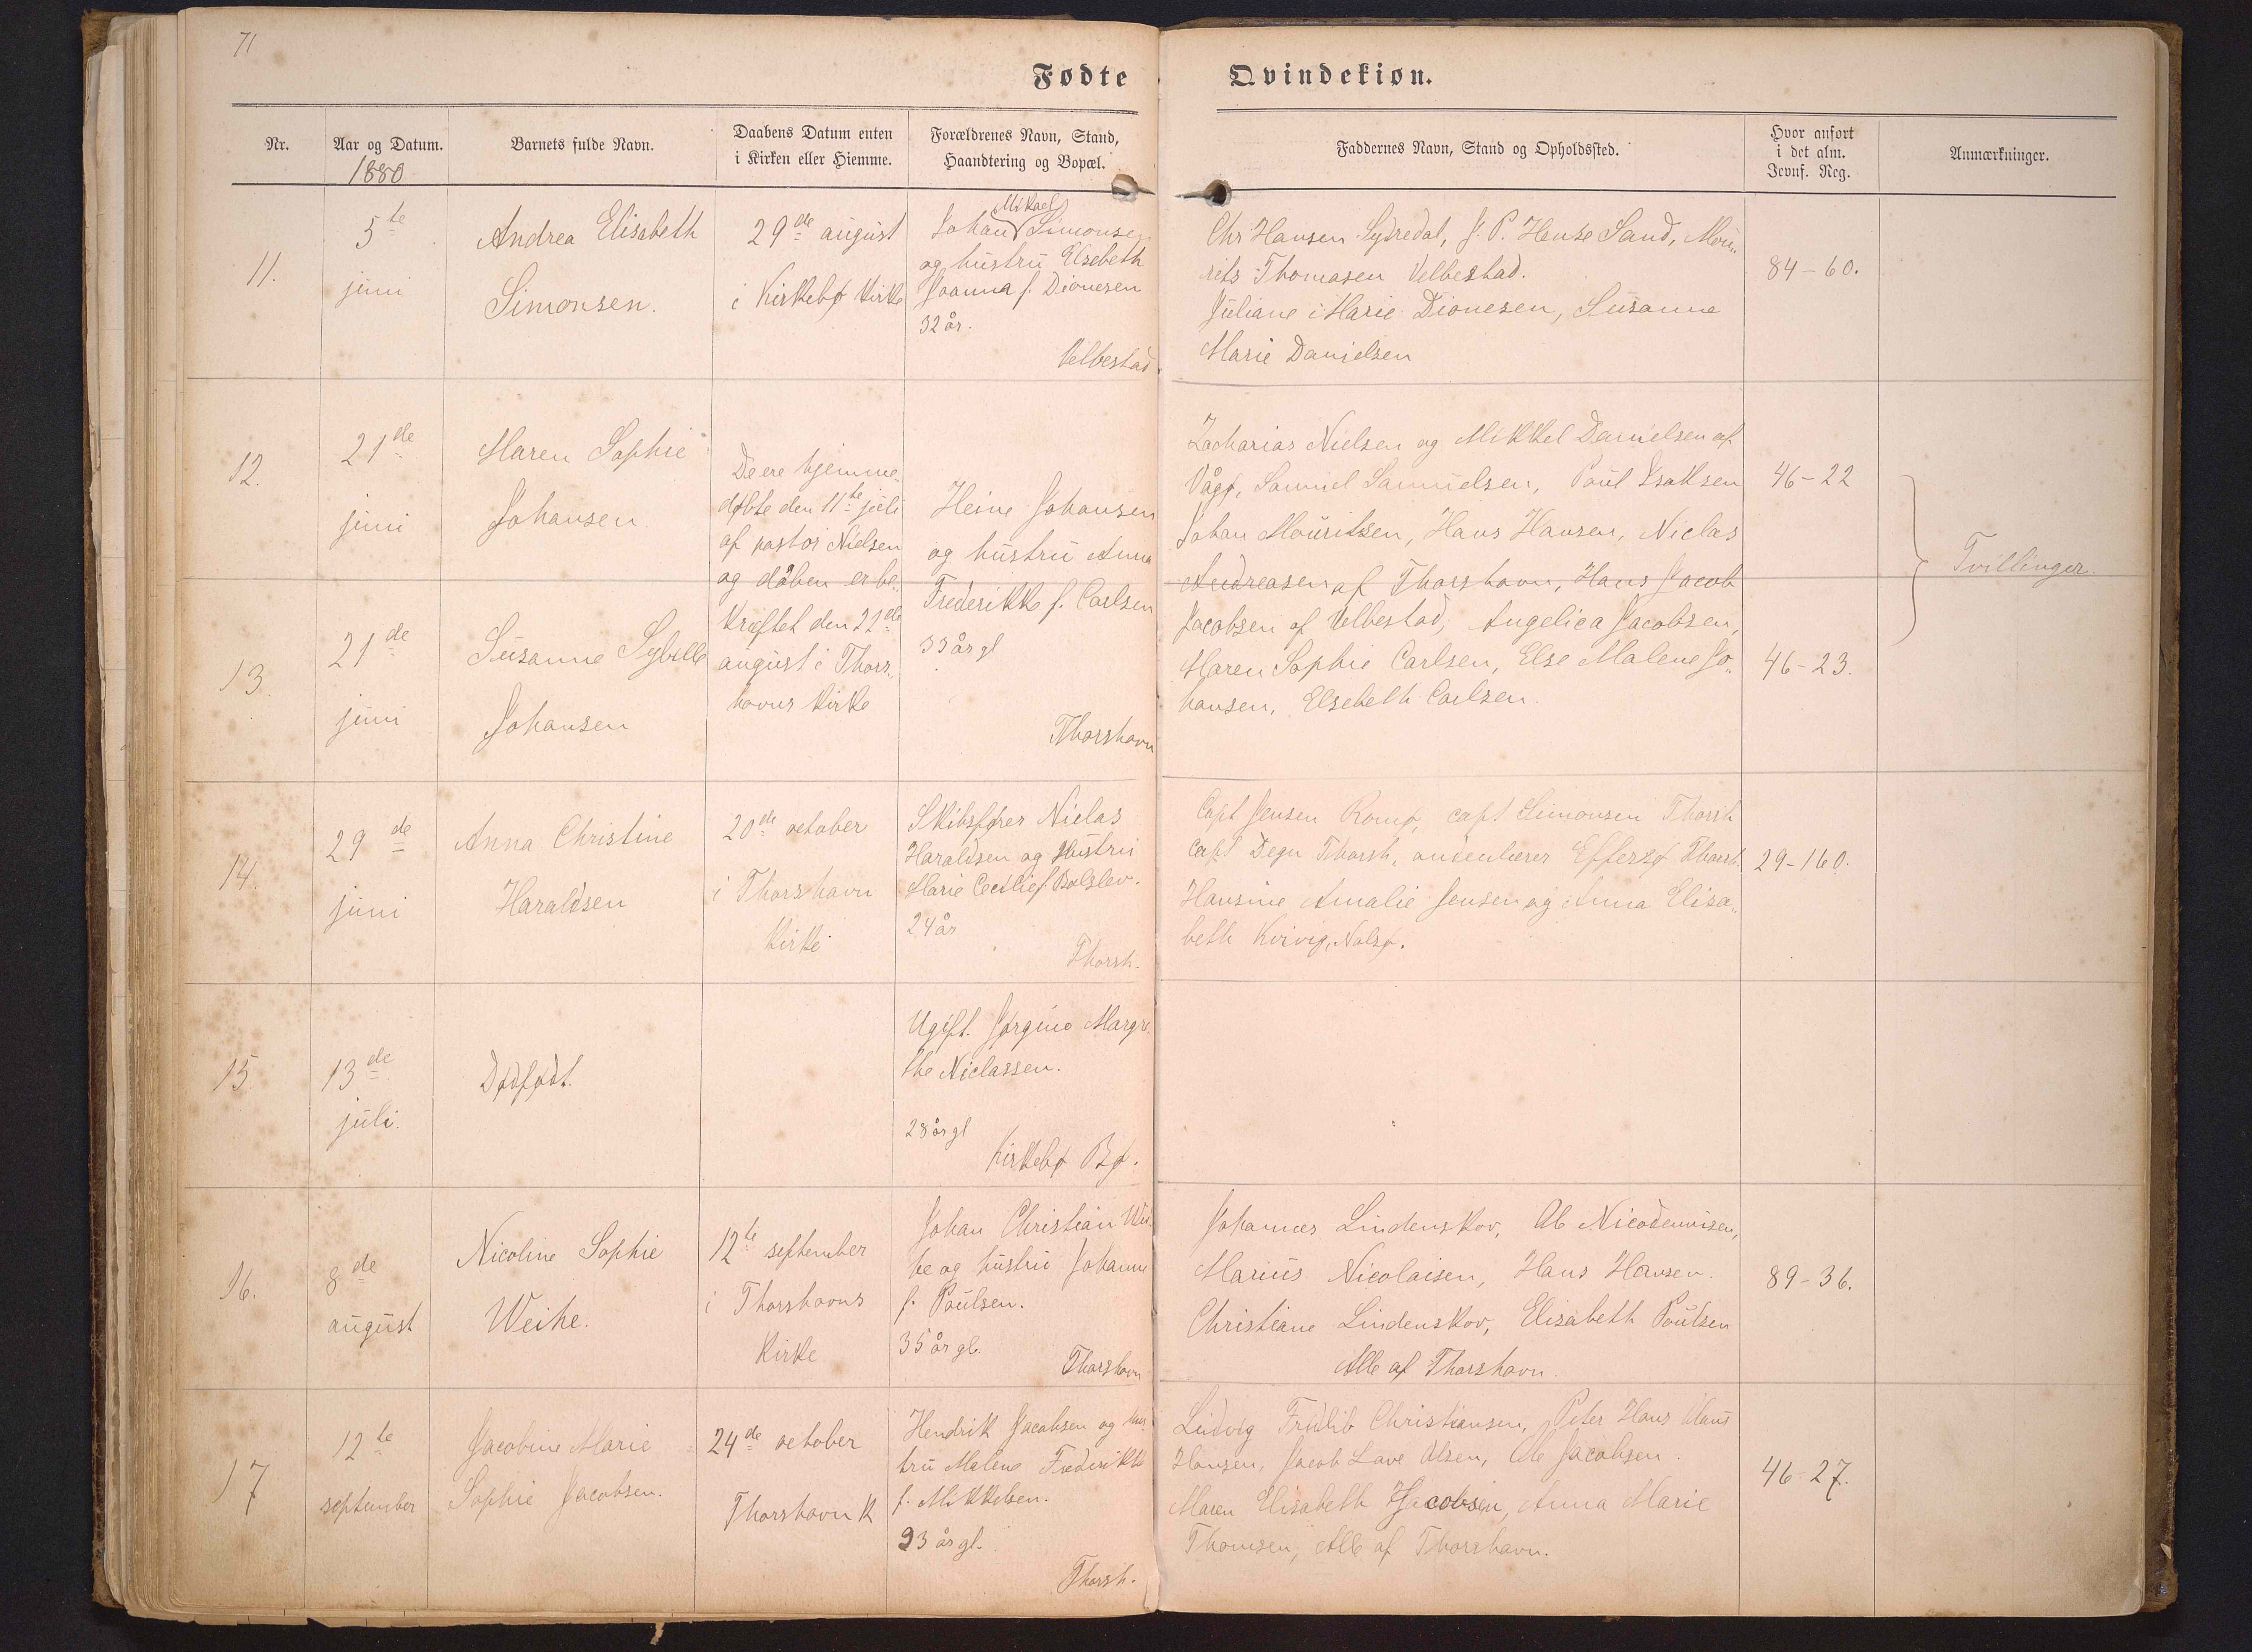 71
Fødte Qvindekiøn.
Nr.
Aar og Datum.
1880
Barnets fulde Navn.
Daabens Datum enten
i Kirken eller Hiemme.
Forældrenes Navn, Stand,
Haandtering og Bopæl.
Faddernes Navn, Stand og Opholdssted.
Hvor anført
i det alm.
Jevnf. Reg.
Anmærkninger.
11.
5te
juni
Andrea Elisabeth
Simonsen.
29de august
i Kirkebø Kirke
Mikael
Johan Simonsen
og hustru Elsebeth
Joanna f. Dionesen
32 år.
Velbestad
Chr Hansen Sydredal, J. P. Hentze Sand, Mou-
rits Thomasen Velbestad.
Juliane Marie Dionesen, Susanne
Marie Danielsen
84-60.
12.
21de
juni
Maren Sophie
Johansen
De ere hjemme
døbte den 11te juli
af pastor Nielsen
og dåben er be-
kræftet den 22de
august i Thors-
havns Kirke
Heine Johansen
og hustru Anna
Frederikke f. Carlsen
33 år gl
Thorshavn
Zacharias Nielsen og Mikkel Danielsen af
Vågø, Samuel Samuelsen, Poul Isaksen
Johan Mouritsen, Hans Hansen, Niclas
Andreasen af Thorshavn, Hans Jacob
Jacobsen af Velbestad, Angelica Jacobsen,
Maren Sophie Carlsen, Else Malene Jo-
hansen, Elsebeth Carlsen.
46-22
Tvillinger.
13.
21de
juni
Susanne Sybille
Johansen
46-23.
14.
29de
juni
Anna Christine
Haraldsen
20de october
i Thorshavn
Kirke
Skibsfører Niclas
Haraldsen og Hustru
Marie Cecilie f. Bolslev.
24 år
Thorsh.
Capt Jensen Romø, capt Simonsen Thorsh
Capt Degn Thorsh, Effersø Thorsh.
Hansine Amalie Jensen og Anna Elisa-
beth Kvivig, Nolsø.
29-160.
15
13de
juli.
Dødfødt.
Ugift. Jørgine Margre-
the Niclassen.
28 år gl
Kirkebø Bø.
16.
8de
august
Nicoline Sophie
Weihe.
12te september
i Thorshavns
Kirke
Johan Christian Wei-
he og hustru Johanne
f. Poulsen.
35 år gl.
Thorshavn
Johannes Lindenskov, Ole Nicodemisen,
Marius Nicolaisen, Hans Hansen.
Christiane Lindenskov, Elisabeth Poulsen
Alle af Thorshavn.
89-36.
17
12te
september
Jacobine Marie
Sophie Jacobsen.
24de october
Thorshavn K
Hendrik Jacobsen og hus-
tru Malene Frederikke
f. Mikkelsen.
23 år gl.
Thorsh.
Ludvig Fridlib Christiansen, Peter Hans
Hansen, Jacob Lave Olsen, Ole Jacobsen.
Maren Elisabeth Jacobsen, Anna Marie
Thomsen, Alle af Thorshavn.
46-27.